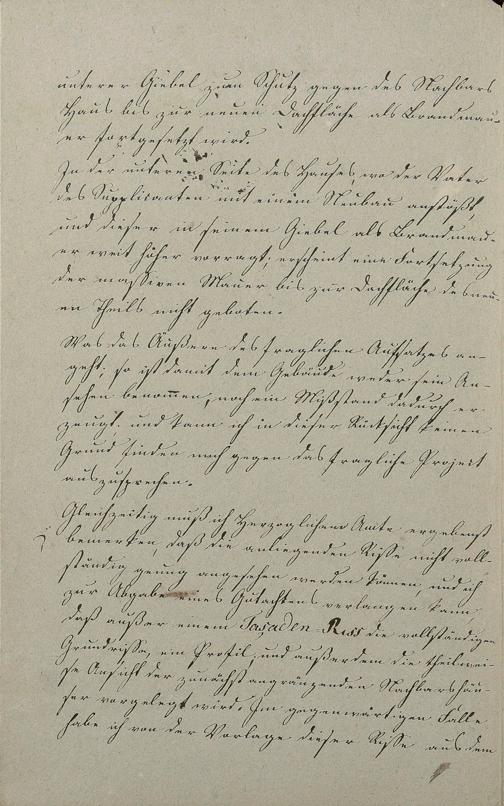 unterer Giebel zum Schutz gegen des Nachbars
Haus bis zur neuen Dachfläche als Brandmau-
er fortgesetzt wird.
In der unteren Seite des Hauses, wo der Vater
des Supplicanten mit einem Neubau anstößt,
und dieser in seinem Giebel als Brandmau-
er weit höher vorragt; erscheint eine Fortsetzung
der massiven Mauer bis zur Dachfläche des neu-
en Theils nicht geboten.
Was das Äußere des fraglichen Aufsatzes an-
geht; so ist damit dem Gebäude weder sein An-
sehen benommen, noch ein Mißstand dadurch er-
zeugt. und kann ich in dieser Rücksicht keinen
Grund finden mich gegen das fragliche Project
auszusprechen.
Gleichzeitig muß ich Herzoglichem Amte ergebenst
bemerken, daß die anliegenden Risse nicht voll-
ständig genug angesehen werden können, und ich
zur Abgabe eines Gutachtens verlangen kann,
daß außer einem Façaden-Riss die vollständigen
Grundrisse, ein Profil, und außerdem die theilwei-
se Ansicht der zunächst angränzenden Nachbarshäu-
ser vorgelegt wird. Im gegenwärtigen Falle
habe ich von der Vorlage dieser Risse aus dem